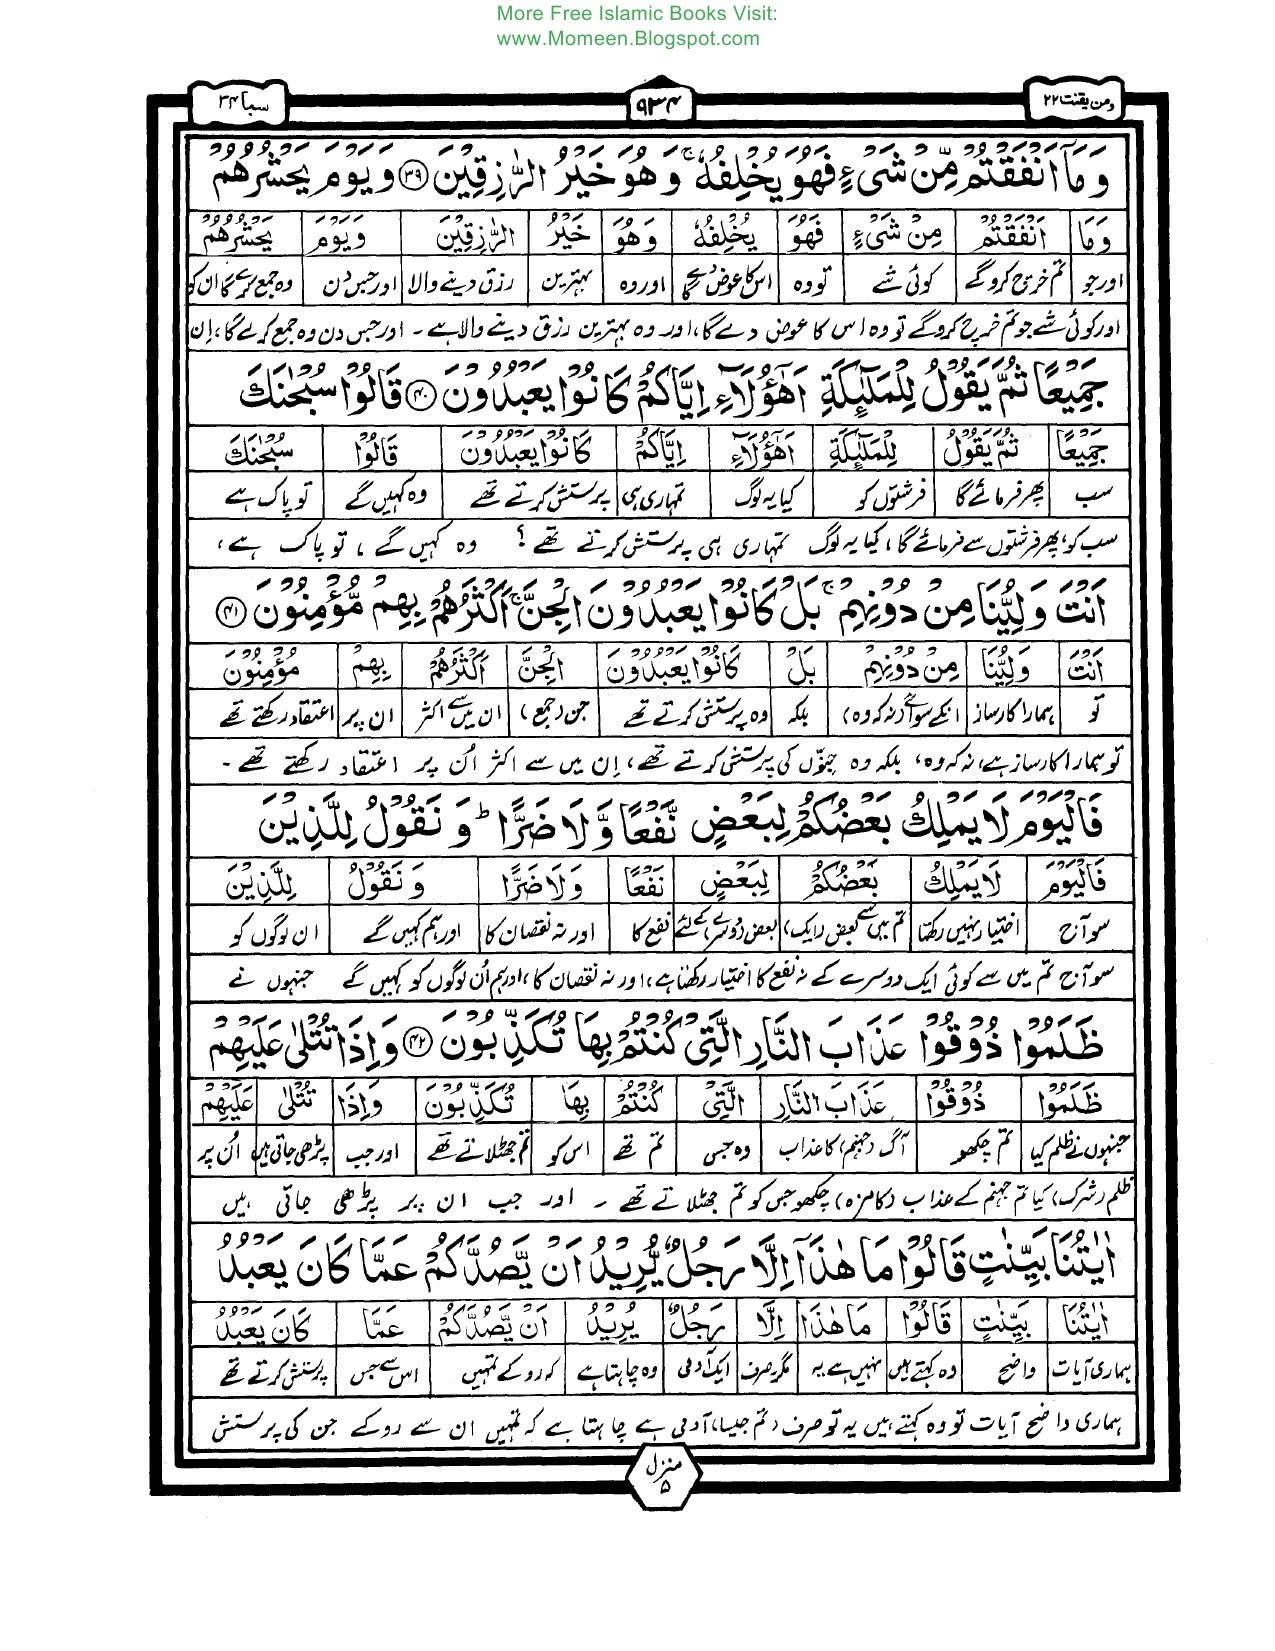 More Free Islamic Books Visit:
www.Momeen.Blogspot.com
ومن یقنت ۲۲
۹۳۴
سبا ۳۴
وَمَآ اَنْفَقْتُمْ مِّنْ شَیْءٍ فَهُوَ یُخْلِفُهٗ ۚ وَهُوَ خَیْرُ الرّٰزِقِیْنَ ۳۹ وَیَوْمَ یَحْشُرُهُمْ
وَمَا اَنْفَقْتُمْ مِنْ شَیْءٍ فَهُوَ یُخْلِفُهٗ وَهُوَ خَیْرُ الرّٰزِقِیْنَ وَیَوْمَ یَحْشُرُهُمْ
اور جو تم خرچ کروگے کوئی شے تو وہ اس کا عوض دے گا اور وہ بہترین رزق دینے والا اور جس دن وہ جمع کرے گا ان کو
اور کوئی شے جو تم خرچ کروگے تو وہ اس کا عوض دے گا، اور وہ بہترین رزق دینے والا ہے ۔ اور جس دن وہ جمع کرے گا، اِن
جَمِیْعًا ثُمَّ یَقُوْلُ لِلْمَلٰٓئِکَةِ اَهٰٓؤُلَآءِ اِیَّاکُمْ کَانُوْا یَعْبُدُوْنَ ۴۰ قَالُوْا سُبْحٰنَكَ
جَمِیْعًا ثُمَّ یَقُوْلُ لِلْمَلٰٓئِکَةِ اَهٰٓؤُلَآءِ اِیَّاکُمْ کَانُوْا یَعْبُدُوْنَ قَالُوْا سُبْحٰنَكَ
سب پھر فرمائے گا فرشتوں کو کیا یہ لوگ تمہاری ہی پرستش کرتے تھے وہ کہیں گے تو پاک ہے
سب کو، پھر فرشتوں سے فرمائے گا، کیا یہ لوگ تمہاری ہی پرستش کرتے تھے ؟ وہ کہیں گے ، تو پاک ہے،
اَنْتَ وَلِیُّنَا مِنْ دُوْنِهِمْ ۚ بَلْ کَانُوْا یَعْبُدُوْنَ الْجِنَّ ۚ اَکْثَرُهُمْ بِهِمْ مُّؤْمِنُوْنَ ۴۱
اَنْتَ وَلِیُّنَا مِنْ دُوْنِهِمْ بَلْ کَانُوْا یَعْبُدُوْنَ الْجِنَّ اَکْثَرُهُمْ بِهِمْ مُؤْمِنُوْنَ
تو ہمارا کارساز انکے سوائے (نہ کہ وہ) بلکہ وہ پرستش کرتے تھے جن (جمع) ان میں سے اکثر ان پر اعتقاد رکھتے تھے
تو ہمارا کارساز ہے، نہ کہ وہ، بلکہ وہ جنّوں کی پرستش کرتے تھے، اِن میں سے اکثر اُن پر اعتقاد رکھتے تھے ۔
فَالْیَوْمَ لَا یَمْلِكُ بَعْضُکُمْ لِبَعْضٍ نَّفْعًا وَّلَا ضَرًّا ؕ وَنَقُوْلُ لِلَّذِیْنَ
فَالْیَوْمَ لَا یَمْلِكُ بَعْضُکُمْ لِبَعْضٍ نَفْعًا وَلَا ضَرًّا وَنَقُوْلُ لِلَّذِیْنَ
سو آج اختیار نہیں رکھتا تم میں سے بعض (ایک) بعض (دوسرے) کے لئے نفع کا اور نہ نقصان کا اور ہم کہیں گے ان لوگوں کو
سو آج تم میں سے کوئی ایک دوسرے کے نہ نفع کا اختیار رکھتا ہے، اور نہ نقصان کا، اور ہم اُن لوگوں کو کہیں گے جنہوں نے
ظَلَمُوْا ذُوْقُوْا عَذَابَ النَّارِ الَّتِیْ کُنْتُمْ بِهَا تُکَذِّبُوْنَ ۴۲ وَاِذَا تُتْلٰی عَلَیْهِمْ
ظَلَمُوْا ذُوْقُوْا عَذَابَ النَّارِ الَّتِیْ کُنْتُمْ بِهَا تُکَذِّبُوْنَ وَاِذَا تُتْلٰی عَلَیْهِمْ
جنہوں نے ظلم کیا تم چکھو آگ (جہنم) کا عذاب وہ جس تم تھے اس کو تم جھٹلاتے تھے اور جب پڑھی جاتی ہیں اُن پر
ظلم (شرک) کیا تم جہنم کے عذاب (کا مزہ) چکھو جس کو تم جھٹلاتے تھے ۔ اور جب ان پر پڑھی جاتی ہیں
اٰیٰتُنَا بَیِّنٰتٍ قَالُوْا مَا هٰذَآ اِلَّا رَجُلٌ یُّرِیْدُ اَنْ یَّصُدَّکُمْ عَمَّا کَانَ یَعْبُدُ
اٰیٰتُنَا بَیِّنٰتٍ قَالُوْا مَا هٰذَا اِلَّا رَجُلٌ یُرِیْدُ اَنْ یَّصُدَّکُمْ عَمَّا کَانَ یَعْبُدُ
ہماری آیات واضح وہ کہتے ہیں نہیں ہے یہ مگر صرف ایک آدمی وہ چاہتا ہے کہ روکے تمہیں اس سے جس پرستش کرتے تھے
ہماری واضح آیات تو وہ کہتے ہیں یہ تو صرف (تم جیسا) آدمی ہے چاہتا ہے کہ تمہیں ان سے روکے جن کی پرستش
منزل
۵